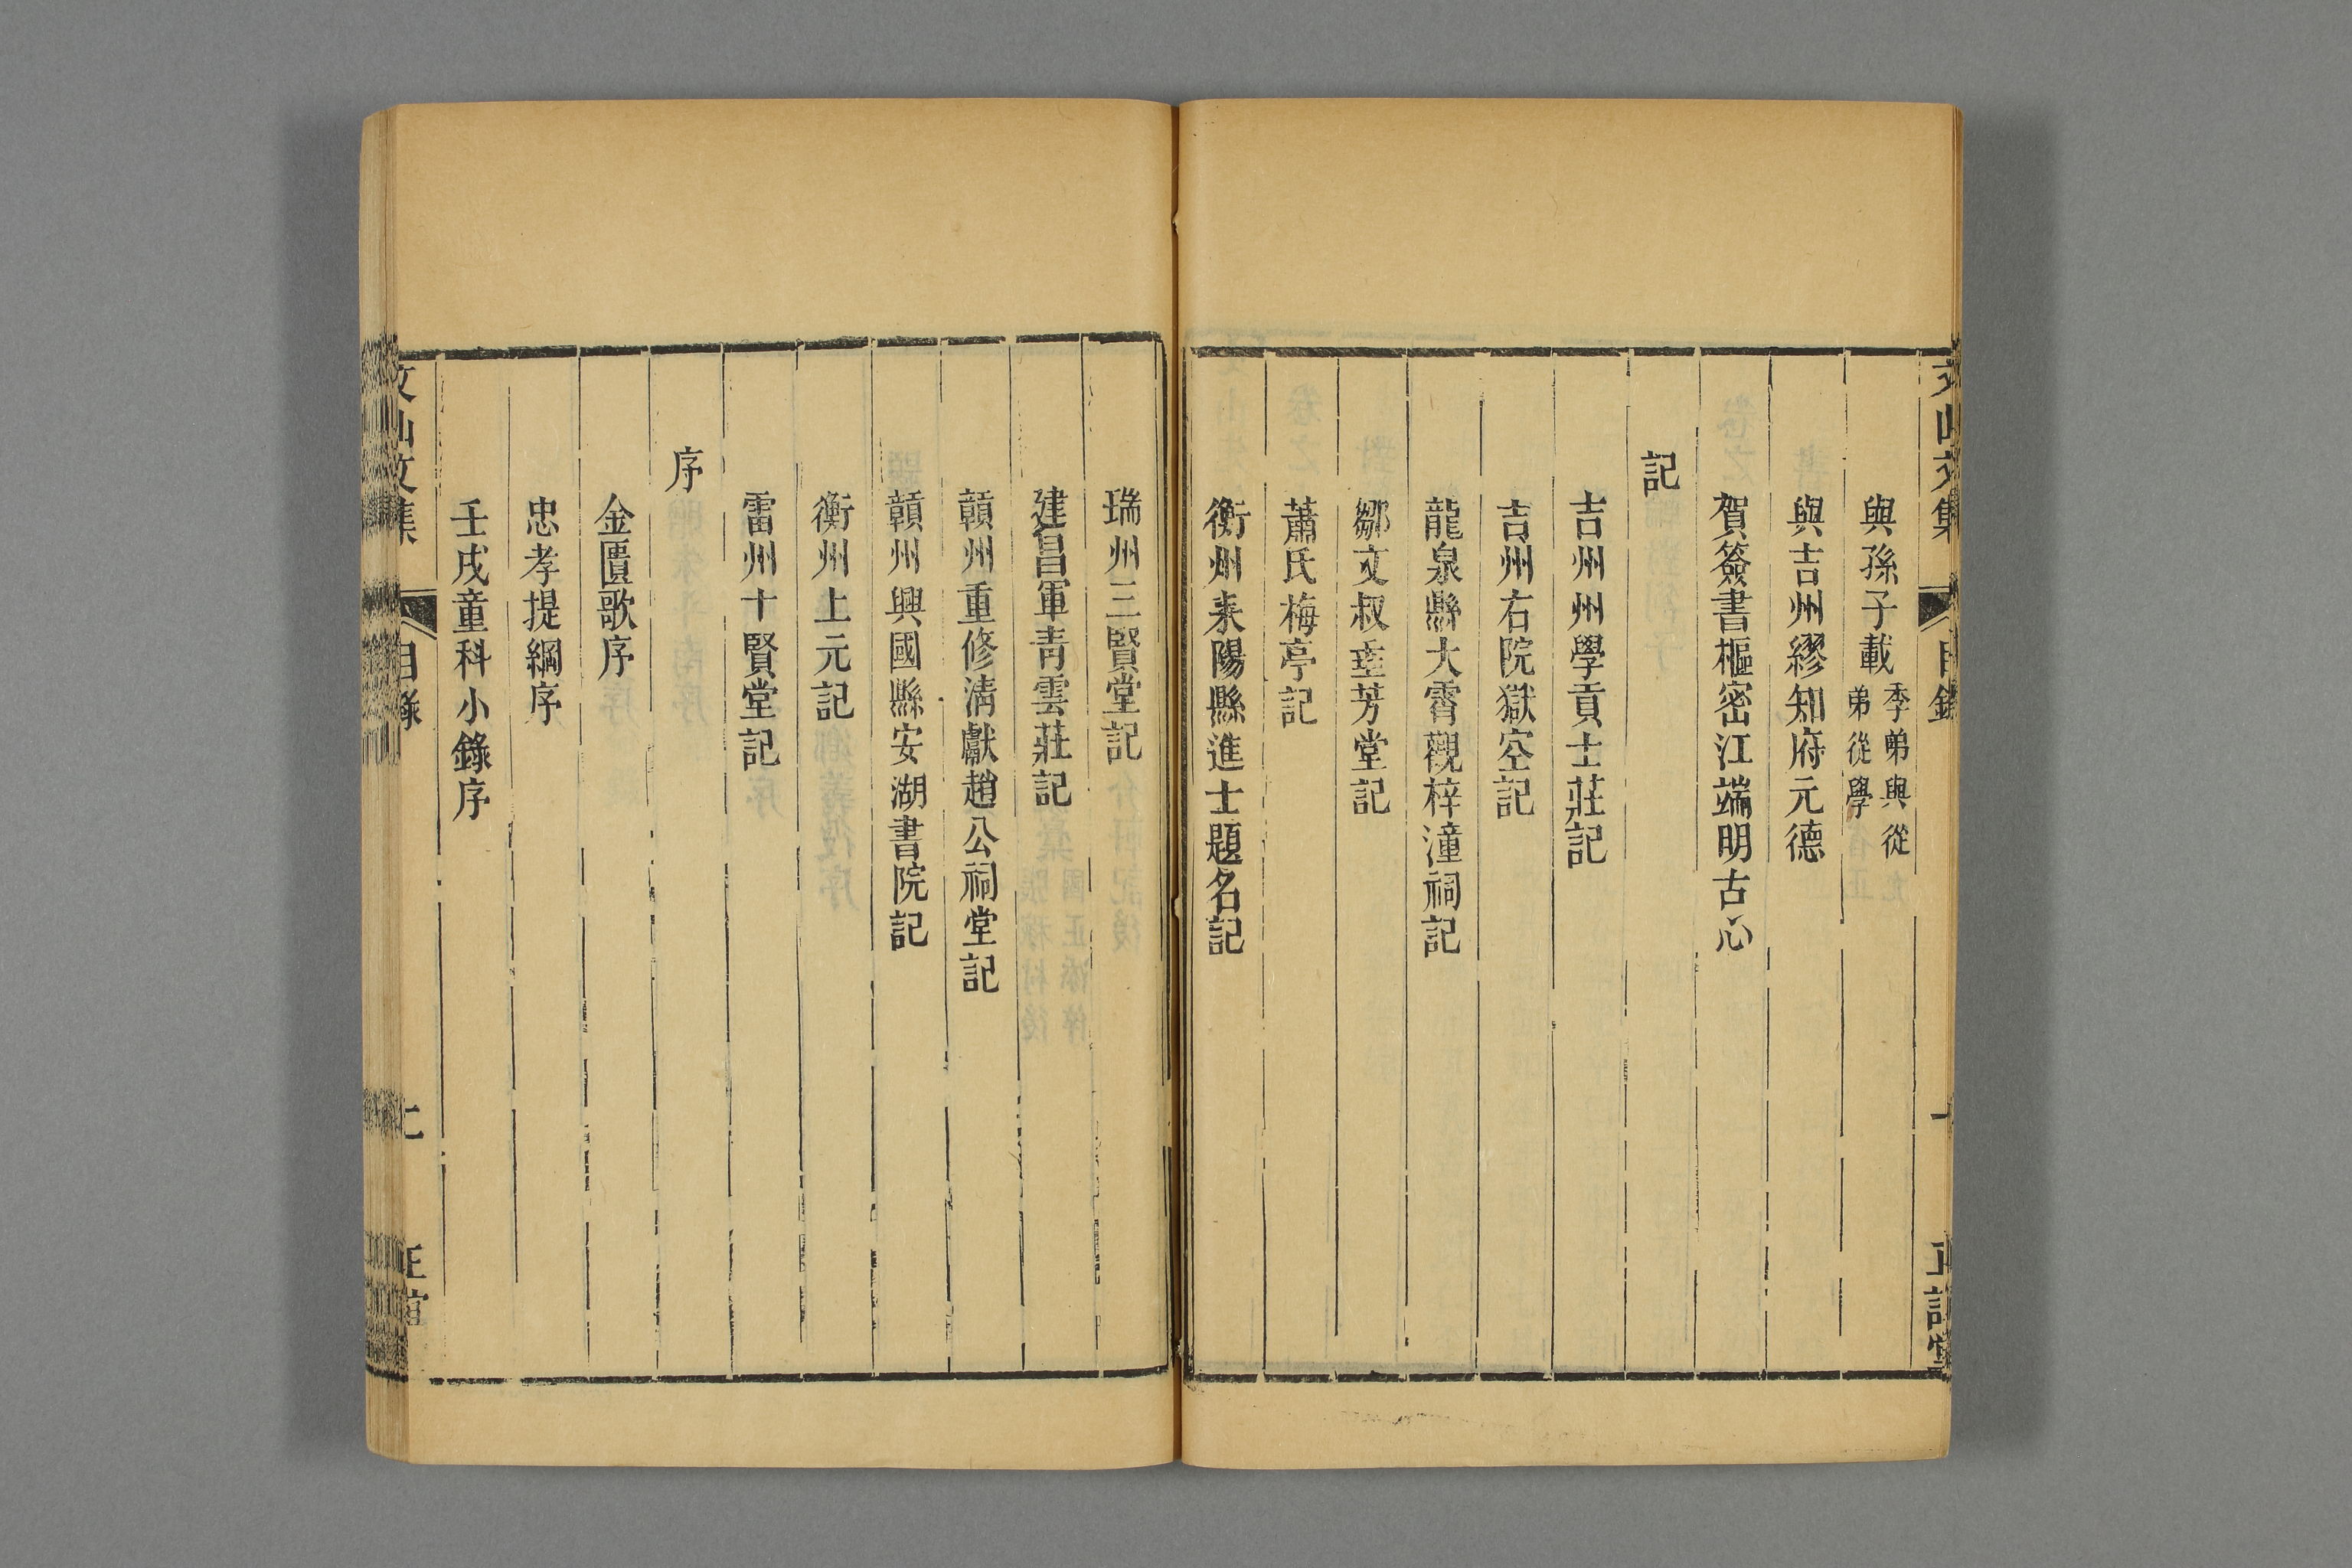 與孫子載 季弟與從弟從學
與吉州繆知府元德
賀簽書樞密江端明古心
記
吉州州學貢士莊記
吉州右院獄空記
龍泉縣大霄觀梓潼祠記
鄒文叔垕芳堂記
蕭氏梅亭記
衡州耒陽縣進士題名記
瑞州三賢堂記
建昌軍青雲莊記
贛州重修清獻趙公祠堂記
贛州興國縣安湖書院記
衡州上元記
雷州十賢堂記
序
金匱歌序
忠孝提綱序
壬戌童科小錄序
文山文集
目錄